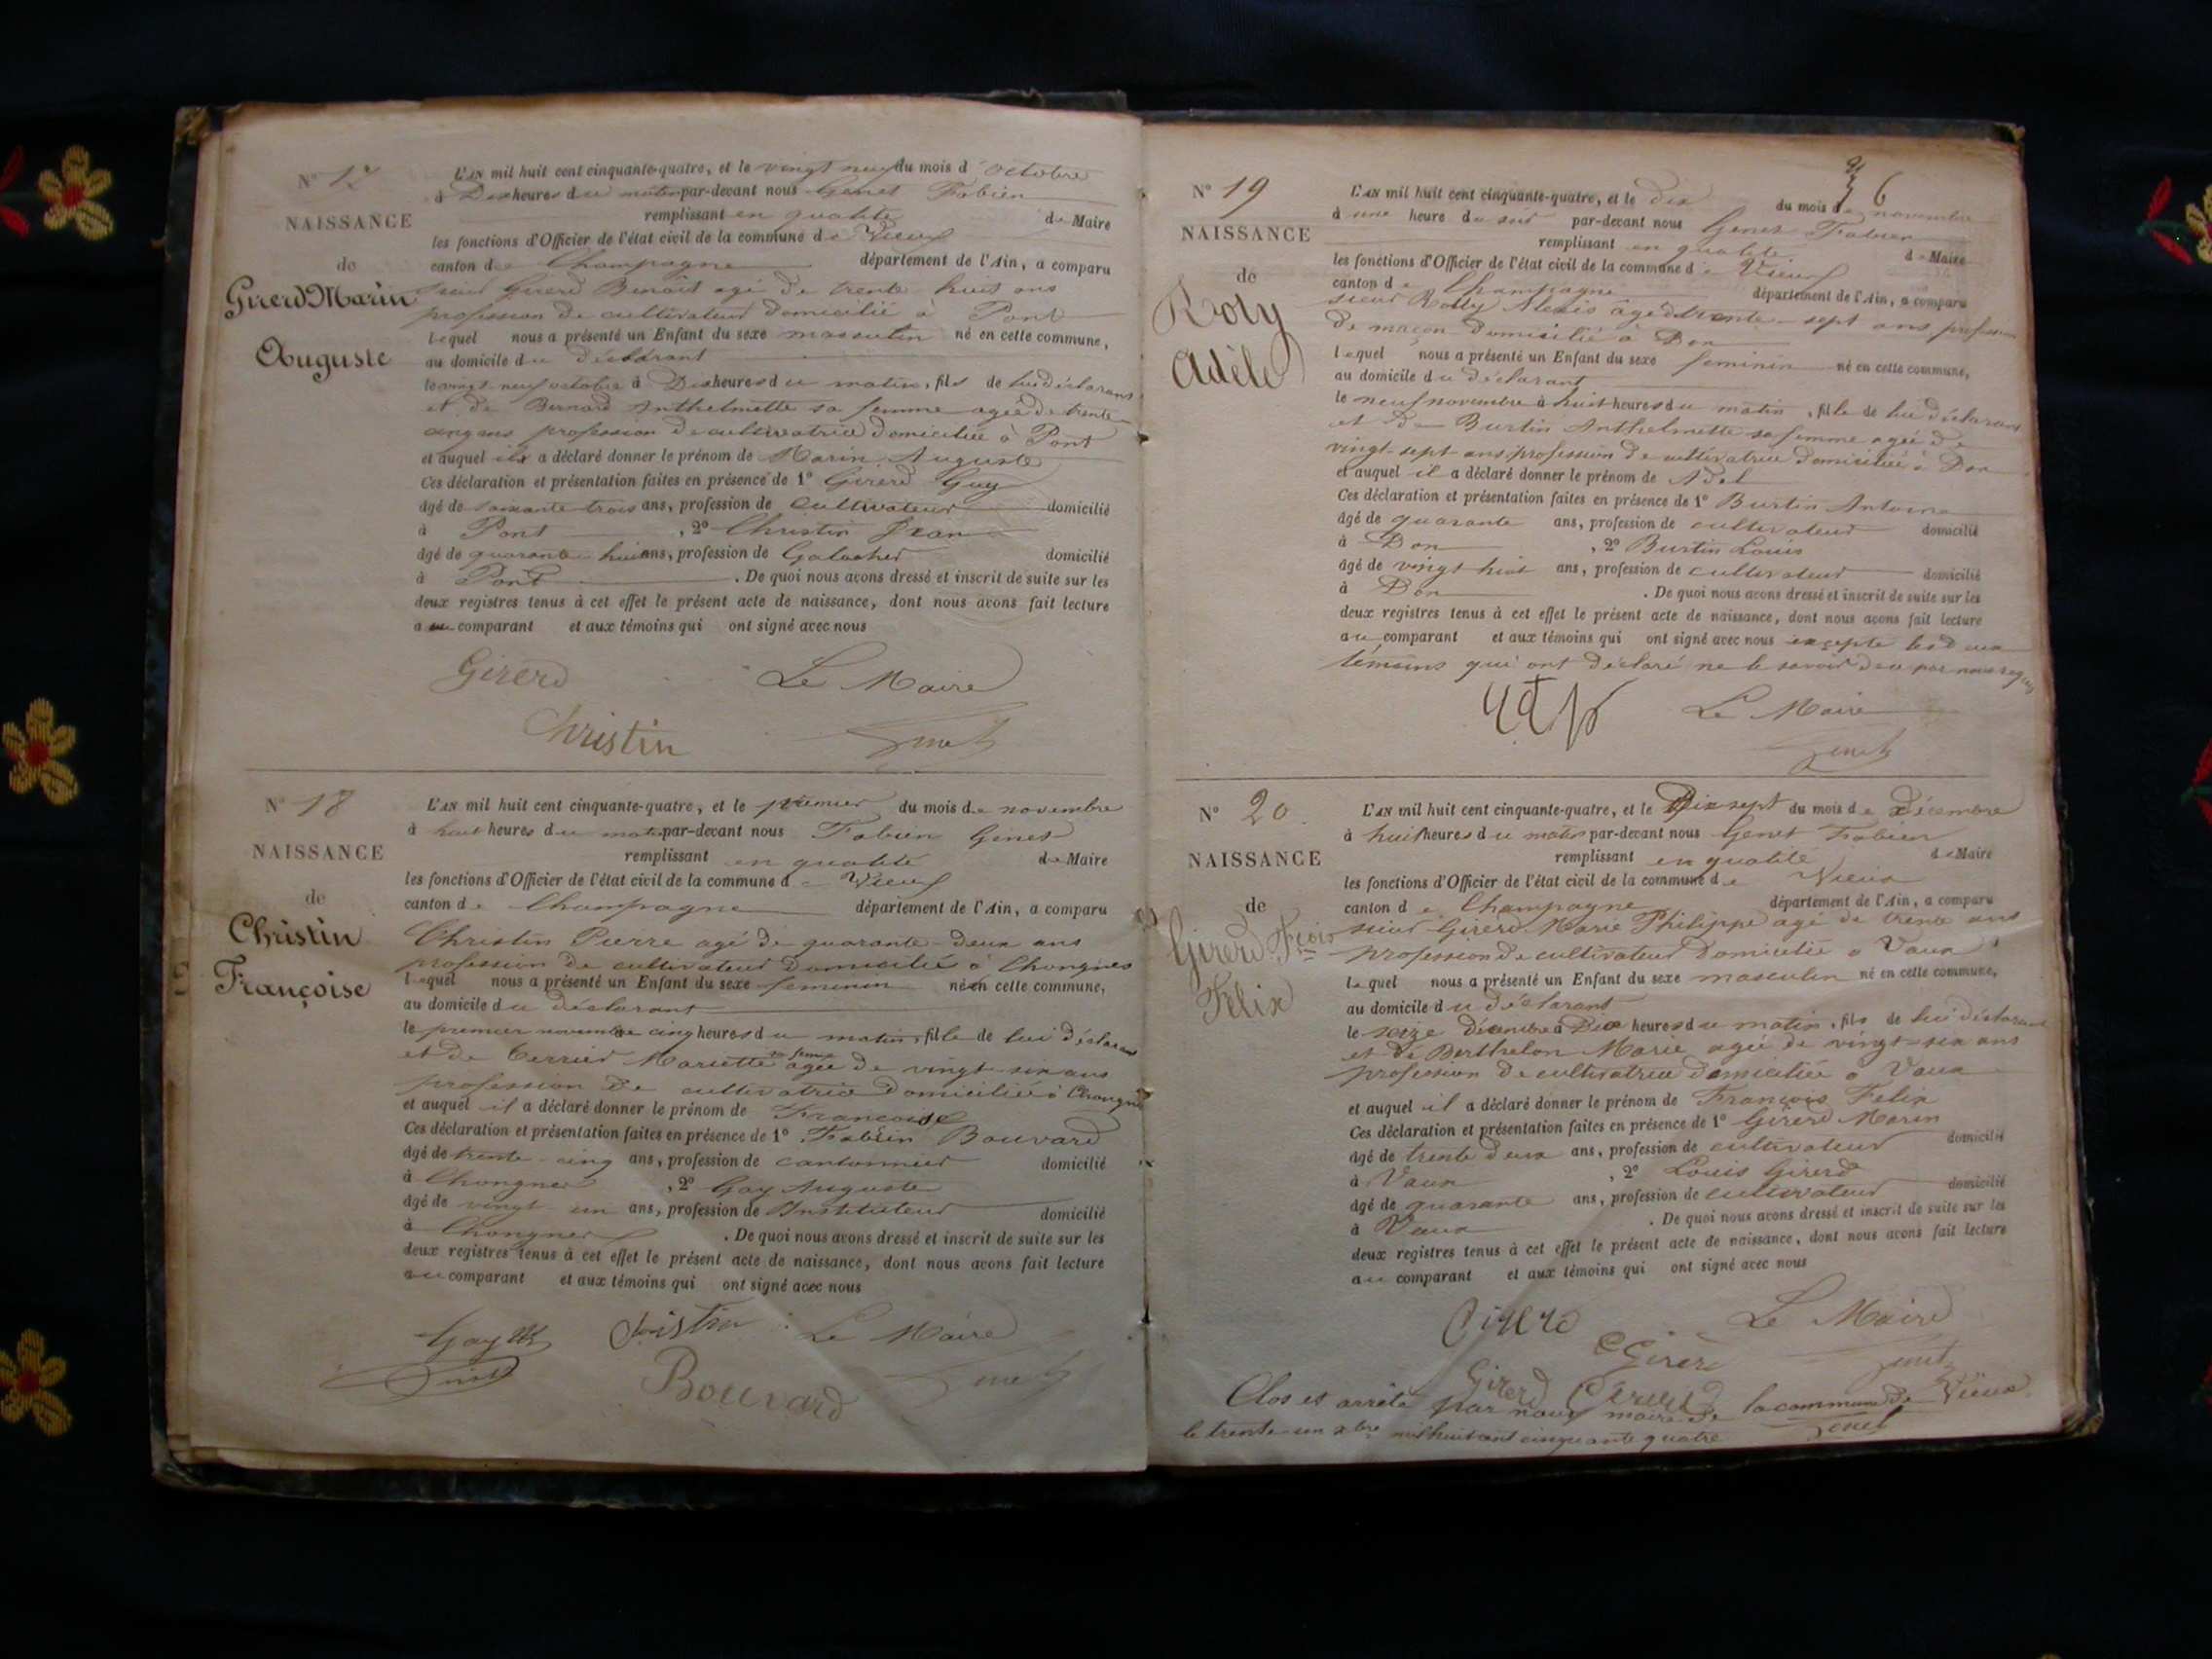 N° 17
NAISSANCE
de
Girerd Marin
Auguste
L'AN mil huit cent cinquante-quatre, et le vingt neuf du mois d'octobre
à Dix heures du matin par-devant nous Genet Fabien
remplissant en qualité de Maire
les fonctions d'Officier de l'état civil de la commune de Vieux
canton de Champagne département de l'Ain, a comparu
sieur Girerd Benoit agé de trente huit ans
profession de cultivateur domicilié à Pont
lequel nous a présenté un Enfant du sexe masculin né en cette commune,
au domicile du déclarant
le vingt neuf octobre à Dix heures du matin, fils de lui déclarant
et de Bernard Anthelmette sa femme agée de trente
cinq ans profession de cultivatrice domiciliée à Pont
et auquel il a déclaré donner le prénom de Marin Auguste
Ces déclaration et présentation faites en présence de 1° Girerd Guy
âgé de soixante trois ans, profession de cultivateur domicilié
à Pont, 2° Christin Jean
âgé de quarante huit ans, profession de domicilié
à Pont. De quoi nous avons dressé et inscrit de suite sur les
deux registres tenus à cet effet le présent acte de naissance, dont nous avons fait lecture
au comparant et aux témoins qui ont signé avec nous
Girerd Le Maire
Christin Genet
N° 18
NAISSANCE
de
Christin
Françoise
L'AN mil huit cent cinquante-quatre, et le premier du mois de novembre
à huit heures du matin par-devant nous Fabien Genet
remplissant en qualité de Maire
les fonctions d'Officier de l'état civil de la commune de Vieux
canton de Champagne département de l'Ain, a comparu
Christin Pierre agé de quarante-deux ans
profession de cultivateur domicilié à Chongnes
lequel nous a présenté un Enfant du sexe feminin né en cette commune,
au domicile du déclarant
le premier novembre cinq heures du matin, fille de lui déclarant
et de Terrier Mariette sa femme agée de vingt-six ans
profession de cultivatrice domiciliée à Chongnes
et auquel il a déclaré donner le prénom de Francoise
Ces déclaration et présentation faites en présence de 1° Fabien Bouvard
âgé de trente-cinq ans, profession de cantonnier domicilié
à Chongnes, 2° Gay Auguste
âgé de vingt-un ans, profession de Instituteur domicilié
à Chongnes. De quoi nous avons dressé et inscrit de suite sur les
deux registres tenus à cet effet le présent acte de naissance, dont nous avons fait lecture
au comparant et aux témoins qui ont signé avec nous
Gay Christin Le Maire
Bouvard Genet
6
N° 19
NAISSANCE
de
Roly
Adèle
L'AN mil huit cent cinquante-quatre, et le dix du mois de novembre
à une heure du soir par-devant nous Genet Fabien
remplissant en qualité de Maire
les fonctions d'Officier de l'état civil de la commune de Vieux
canton de Champagne département de l'Ain, a comparu
sieur Rolly Alexis âgé de trente-sept ans profession
de maçon domicilié à Don
lequel nous a présenté un Enfant du sexe feminin né en cette commune,
au domicile du déclarant
le neuf novembre à huit heures du matin, fille de lui déclarant
et de Burtin Anthelmette sa femme agée de
vingt-sept ans profession de cultivatrice domiciliée à Don
et auquel il a déclaré donner le prénom de Adel
Ces déclaration et présentation faites en présence de 1° Burtin Antoine
âgé de quarante ans, profession de cultivateur domicilié
à Don, 2° Burtin Louis
âgé de vingt huit ans, profession de cultivateur domicilié
à Don. De quoi nous avons dressé et inscrit de suite sur les
deux registres tenus à cet effet le présent acte de naissance, dont nous avons fait lecture
au comparant et aux témoins qui ont signé avec nous excepte les deux
témoins qui ont déclaré ne le savoir de ce par nous requis
Le Maire
Genet
N° 20
NAISSANCE
de
Girerd Fçois
Felix
L'AN mil huit cent cinquante-quatre, et le Dix sept du mois de Décembre
à huit heures du matin par-devant nous Genet Fabien
remplissant en qualité de Maire
les fonctions d'Officier de l'état civil de la commune de Vieux
canton de Champagne département de l'Ain, a comparu
sieur Girerd Marie Philippe agé de trente ans
profession de cultivateur domicilié à Vaux
lequel nous a présenté un Enfant du sexe masculin né en cette commune,
au domicile du déclarant
le seize décembre à Dix heures du matin, fils de lui déclarant
et de Berthelon Marie agée de vingt-six ans
profession de cultivatrice domiciliée à Vaux
et auquel il a déclaré donner le prénom de François Felix
Ces déclaration et présentation faites en présence de 1° Girerd Marin
âgé de trente deux ans, profession de cultivateur domicilié
à Vaux, 2° Louis Girerd
âgé de quarante ans, profession de cultivateur domicilié
à Vaux. De quoi nous avons dressé et inscrit de suite sur les
deux registres tenus à cet effet le présent acte de naissance, dont nous avons fait lecture
au comparant et aux témoins qui ont signé avec nous
Girerd Le Maire
Girerd Genet
Girerd
Clos et arrêté par nous maire de la commune de Vieux
le trente-un xbre mil huit cent cinquante quatre Genet